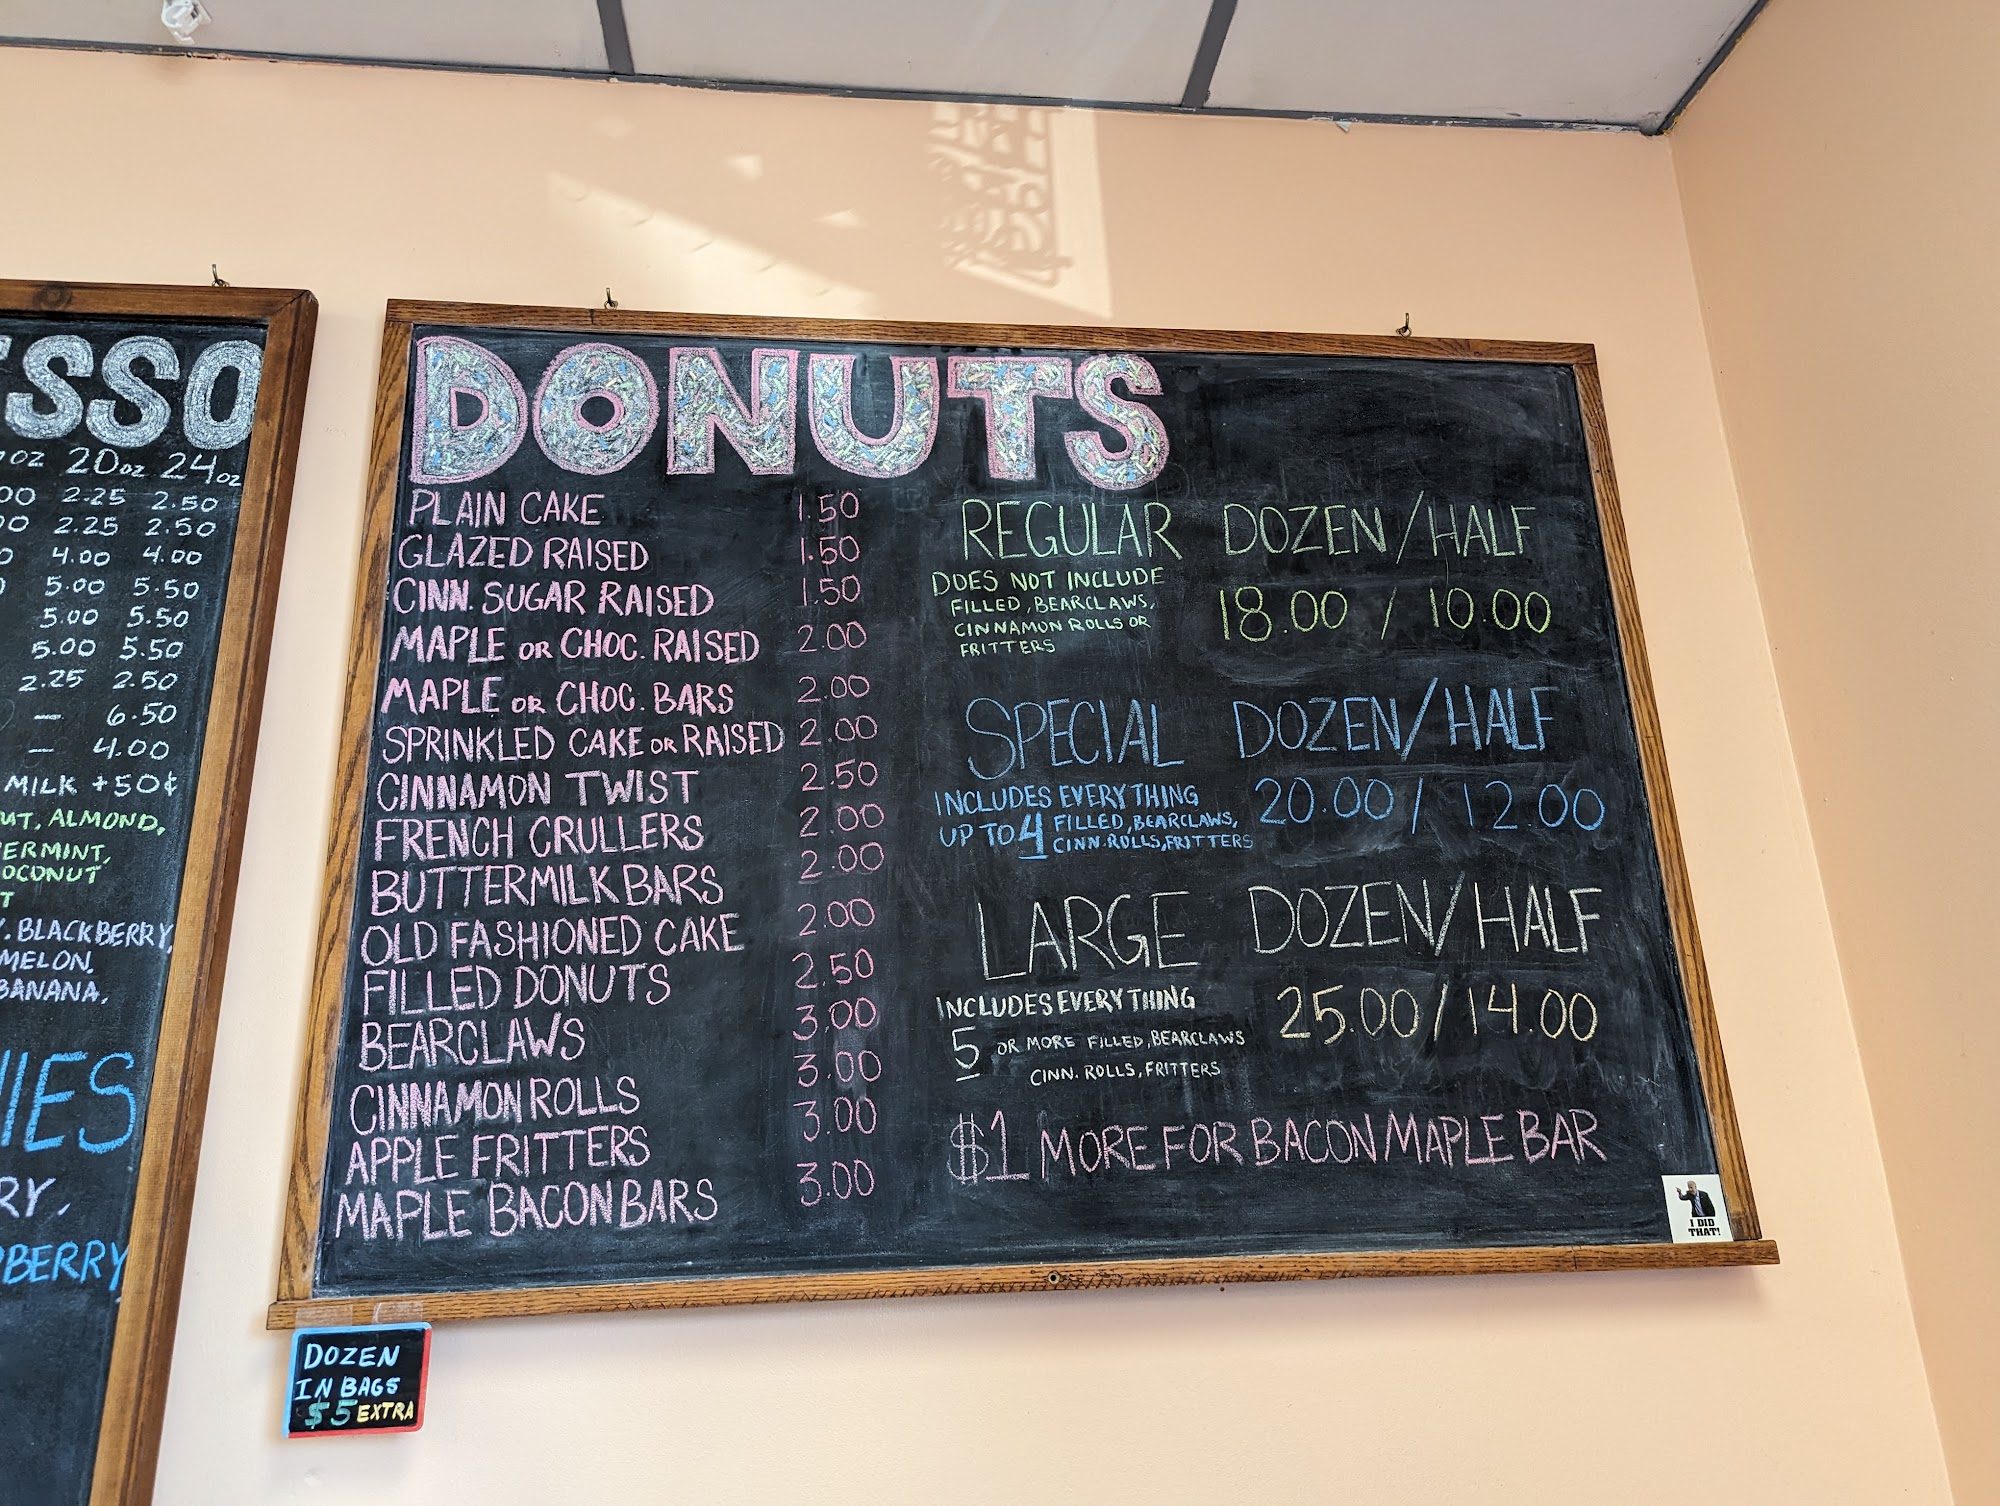 SSO
oz 20oz 24oz
00 2.25 2.50
00 2.25 2.50
0 4.00 4.00
5.00 5.50
5.00 5.50
5.00 5.50
2.25 2.50
— 6.50
— 4.00
MILK +50¢
ALMOND,
ERMINT,
OCONUT
T
. BLACKBERRY,
MELON,
BANANA,
IES
RY,
BERRY
DONUTS
PLAIN CAKE 1.50
GLAZED RAISED 1.50
CINN. SUGAR RAISED 1.50
MAPLE OR CHOC. RAISED 2.00
MAPLE OR CHOC. BARS 2.00
SPRINKLED CAKE OR RAISED 2.00
CINNAMON TWIST 2.50
FRENCH CRULLERS 2.00
BUTTERMILK BARS 2.00
OLD FASHIONED CAKE 2.00
FILLED DONUTS 2.50
BEARCLAWS 3.00
CINNAMON ROLLS 3.00
APPLE FRITTERS 3.00
MAPLE BACON BARS 3.00
REGULAR DOZEN/HALF
DOES NOT INCLUDE
FILLED, BEARCLAWS,
CINNAMON ROLLS OR
FRITTERS
18.00 / 10.00
SPECIAL DOZEN/HALF
INCLUDES EVERYTHING
UP TO 4 FILLED, BEARCLAWS,
CINN. ROLLS, FRITTERS
20.00 / 12.00
LARGE DOZEN/HALF
INCLUDES EVERYTHING
5 OR MORE FILLED, BEARCLAWS
CINN. ROLLS, FRITTERS
25.00 / 14.00
$1 MORE FOR BACON MAPLE BAR
I DID
THAT!
DOZEN
IN BAGS
$5 EXTRA